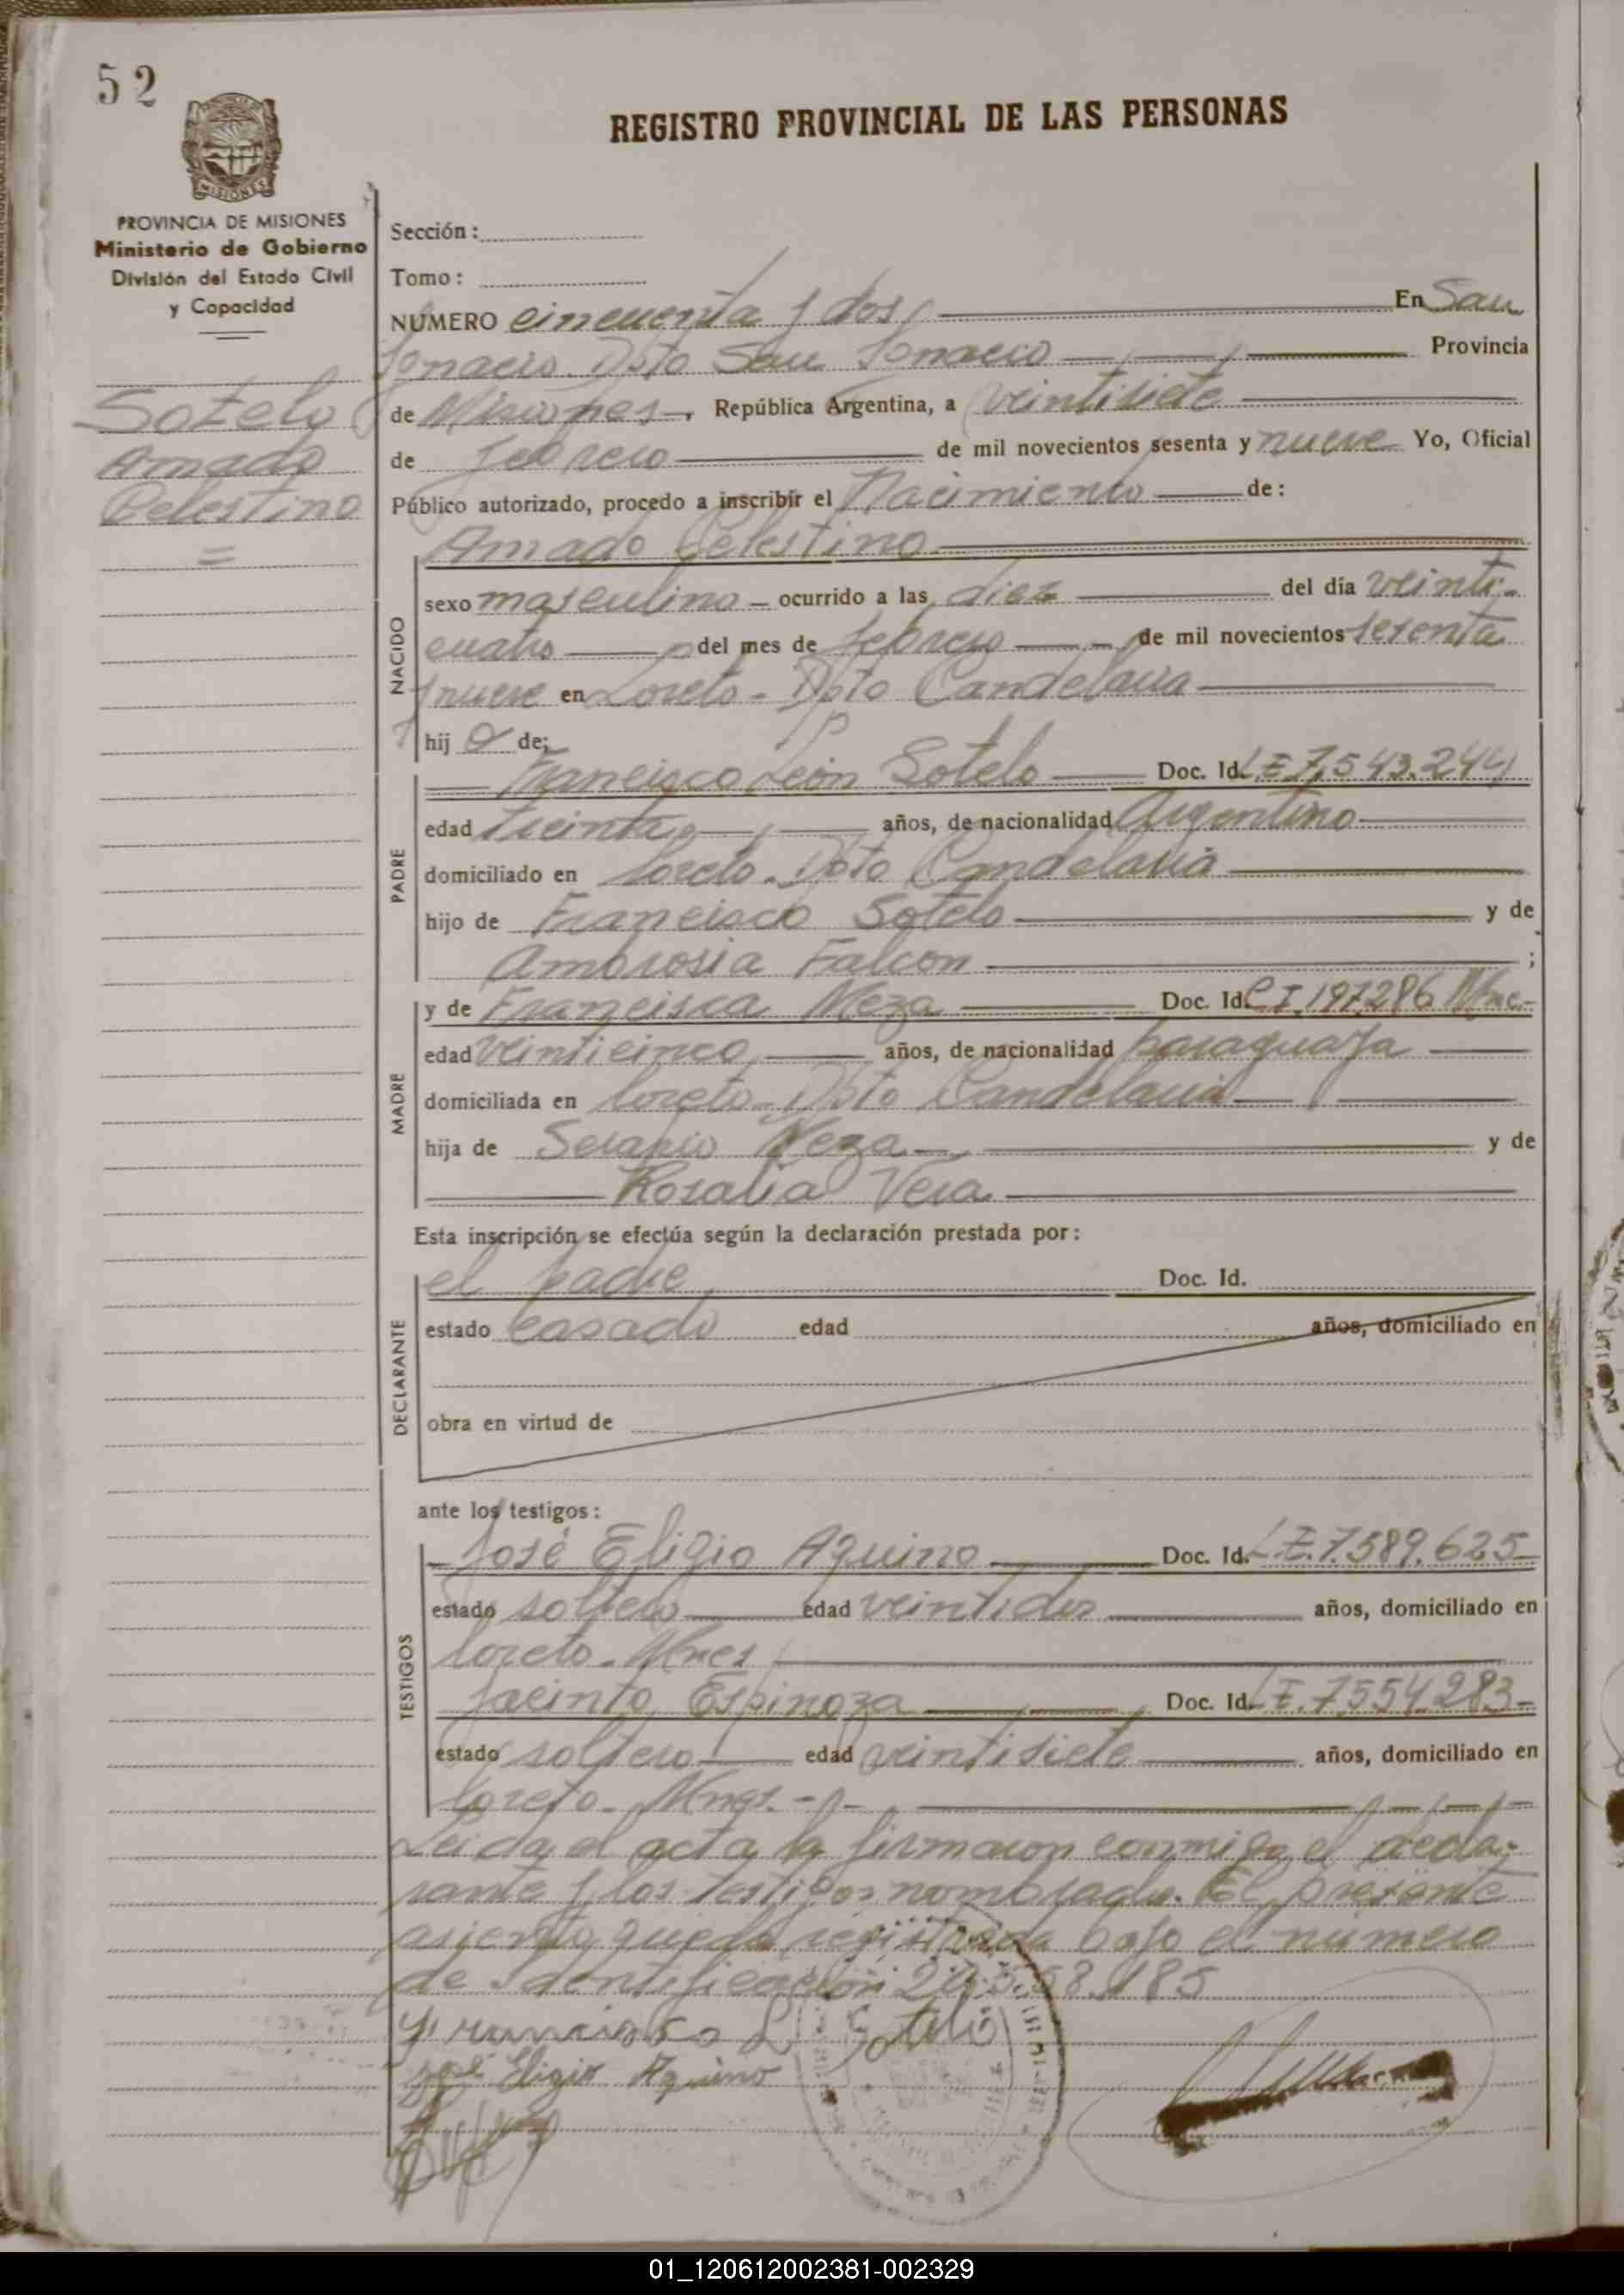 52
REGISTRO PROVINCIAL DE LAS PERSONAS
MISIONES
PROVINCIA DE MISIONES
Ministerio de Gobierno
División del Estado Civil
y Capacidad
Sotelo
Amado
Celestino
Sección:
Tomo:
NUMERO cincuenta y dos En San
Ignacio Dpto San Ignacio Provincia
de Misiones, República Argentina, a veintisiete
de febrero de mil novecientos sesenta y nueve Yo, Oficial
Público autorizado, procedo a inscribir el Nacimiento de:
Amado Celestino
NACIDO
sexo masculino ocurrido a las diez del día veinti-
cuatro del mes de febrero de mil novecientos sesenta
y nueve en Loreto - Dpto Candelaria
hij o de:
PADRE
Francisco León Sotelo Doc. Id. L E 7.543.244
edad treinta años, de nacionalidad Argentino
domiciliado en Loreto - Dpto Candelaria
hijo de Francisco Sotelo y de
Ambrosia Falcon ;
MADRE
y de Francisca Meza Doc. Id. C I 197.286 Mnes.
edad veinticinco años, de nacionalidad paraguaya
domiciliada en Loreto - Dpto Candelaria
hija de Serapio Meza y de
Rosalia Vera
Esta inscripción se efectúa según la declaración prestada por:
DECLARANTE
el padre Doc. Id.
estado casado edad años, domiciliado en
obra en virtud de
ante los testigos:
TESTIGOS
José Eligio Aquino Doc. Id. L.E. 7.589.625
estado soltero edad veintidos años, domiciliado en
Loreto - Mnes
Jacinto Espinoza Doc. Id. L E. 7.554.283
estado soltero edad veintisiete años, domiciliado en
Loreto - Mnes.
Leida el acta la firmaron conmigo el decla-
rante y los testigos nombrados. El presente
asiento queda registrada bajo el número
de Identificación 20.5 8.185
Francisco L Sotelo
José Eligio Aquino
01_120612002381-002329